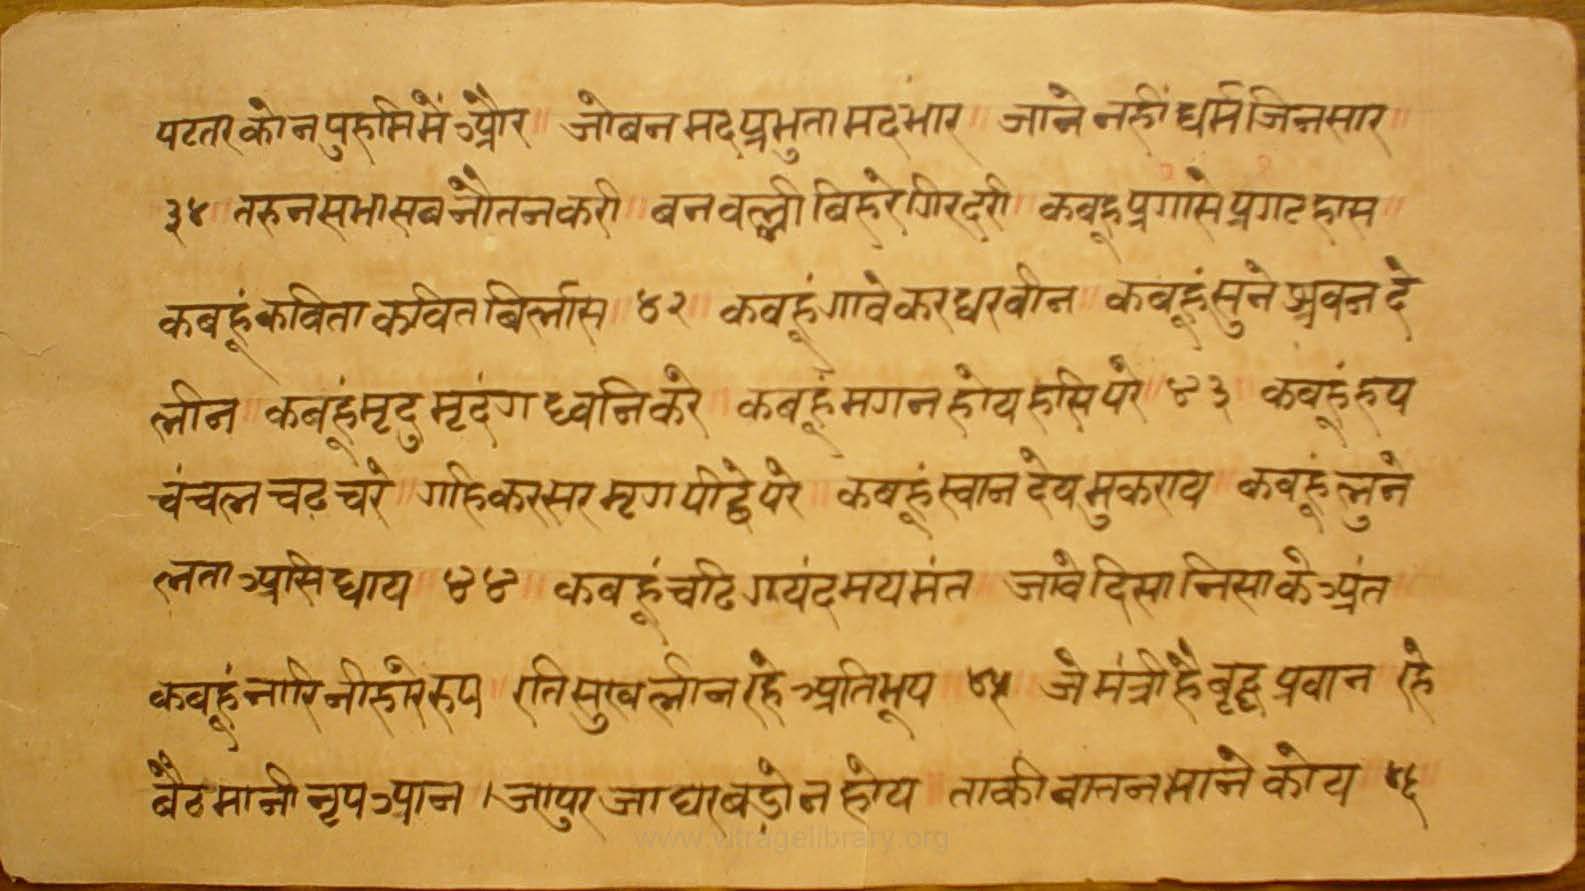 पटतर को न पुहमि में और ॥ जोबन मद प्रभुता मद भार ॥ जाने नहीं धर्म जिनसार ॥
३४ ॥ तरुन सभा सब नौतन करी ॥ बन वल्ली विहरे गिर दरी ॥ कबहू प्रगासे प्रगट हास ॥
कबहूं कविता कवित बिलास ॥ ४२ ॥ कवहूं गावे कर धर वीन ॥ कबहूं सुने श्रवन दे
लीन ॥ कबहूं मृदु मृदंग ध्वनि करे ॥ कबहूं मगन होय हसि परे ॥ ४३ ॥ कवहूं रुप
चंचल चढ चरे ॥ गहि कर सर मृग पीछे परे ॥ कबहूं स्वान देय मुकराय ॥ कबहूं लुने
लता असि घाय ॥ ४४ ॥ कबहूं चढि गयंद मयमंत ॥ जावे दिसा निसा के अंत ॥
कबहूं नारि नीहारे रुप ॥ रति सुख लीन रहे अति भूप ॥ ४५ ॥ जे मंत्री है बृद्ध प्रवान ॥ रहे
बैठ मानी नृप आन । जा पुर जा घर बडो न होय ॥ ताकी बात न माने कोय ॥ ४६
www.vitragelibrary.org